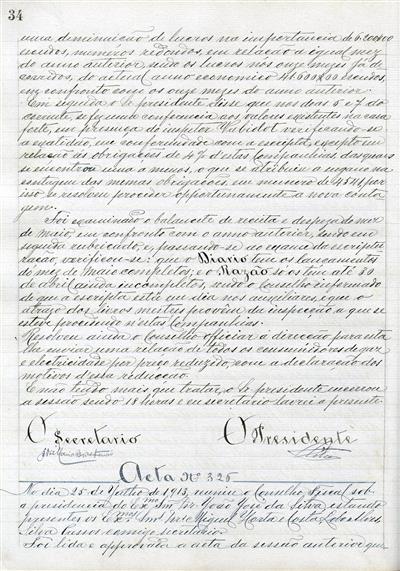 34
uma diminuição de lucros na importancia de 6.200$00
escudos, numeros redondos, em relação a igual mez
do anno anterior, sendo os lucros nos onze mezes já de-
corridos, do actual anno economico 41.600$00 escudos,
em confronto com os onze mezes do anno anterior.
Em seguida o Sr. presidente disse que nos dias 6 e 7 do
corrente, se fez uma conferencia aos valores existentes na casa
forte, em presença do inspetor verificando-se
a exatidão, em conformidade com a escripta, excepto em
relação ás obrigações de 4% d'estas Companhias das quaes
se encontrou uma a menos, o que se attribuiu a engano na
contagem das mesmas obrigações, em numero de 4541, por
isso se resolveu proceder opportunamente a nova conta-
gem.
Foi examinado o balancete de receita e despeza do mez
de Maio, em confronto com o anno anterior, sendo em
seguida rubricado, e, passando-se ao exame da escriptu-
ração, verificou-se: que o Diario tem os lançamentos
do mez de Maio completos; e o Razão só os tem até 30
de abril ainda incompletos, sendo o Conselho informado
de que a escripta está em dia nos auxiliares, e que o
atrazo dos livros mestres provém da inspecção a que se
esteve procedendo n'estas Companhias.
Resolveu ainda o Conselho officiar á direcção para esta
lhe enviar uma relação de todos os consumidores de gaz
e electricidade por preço reduzido, com a declaração dos
motivos d'essa reducção.
E não tendo mais que tratar, o Sr. presidente encerrou
a sessão sendo 18 horas e eu secretario lavrei a presente.
O Secretario O Presidente
Acta Nº 326
No dia 25 de Junho de 1913, reuniu o Conselho Fiscal sob
a presidencia do Exmo Snr. João José da Silva, estando
presentes os Exmos Snrs. Miguel Horta e Costa,
Silva Cassos e comigo secretario.
Foi lida e approvada a acta da sessão anterior que